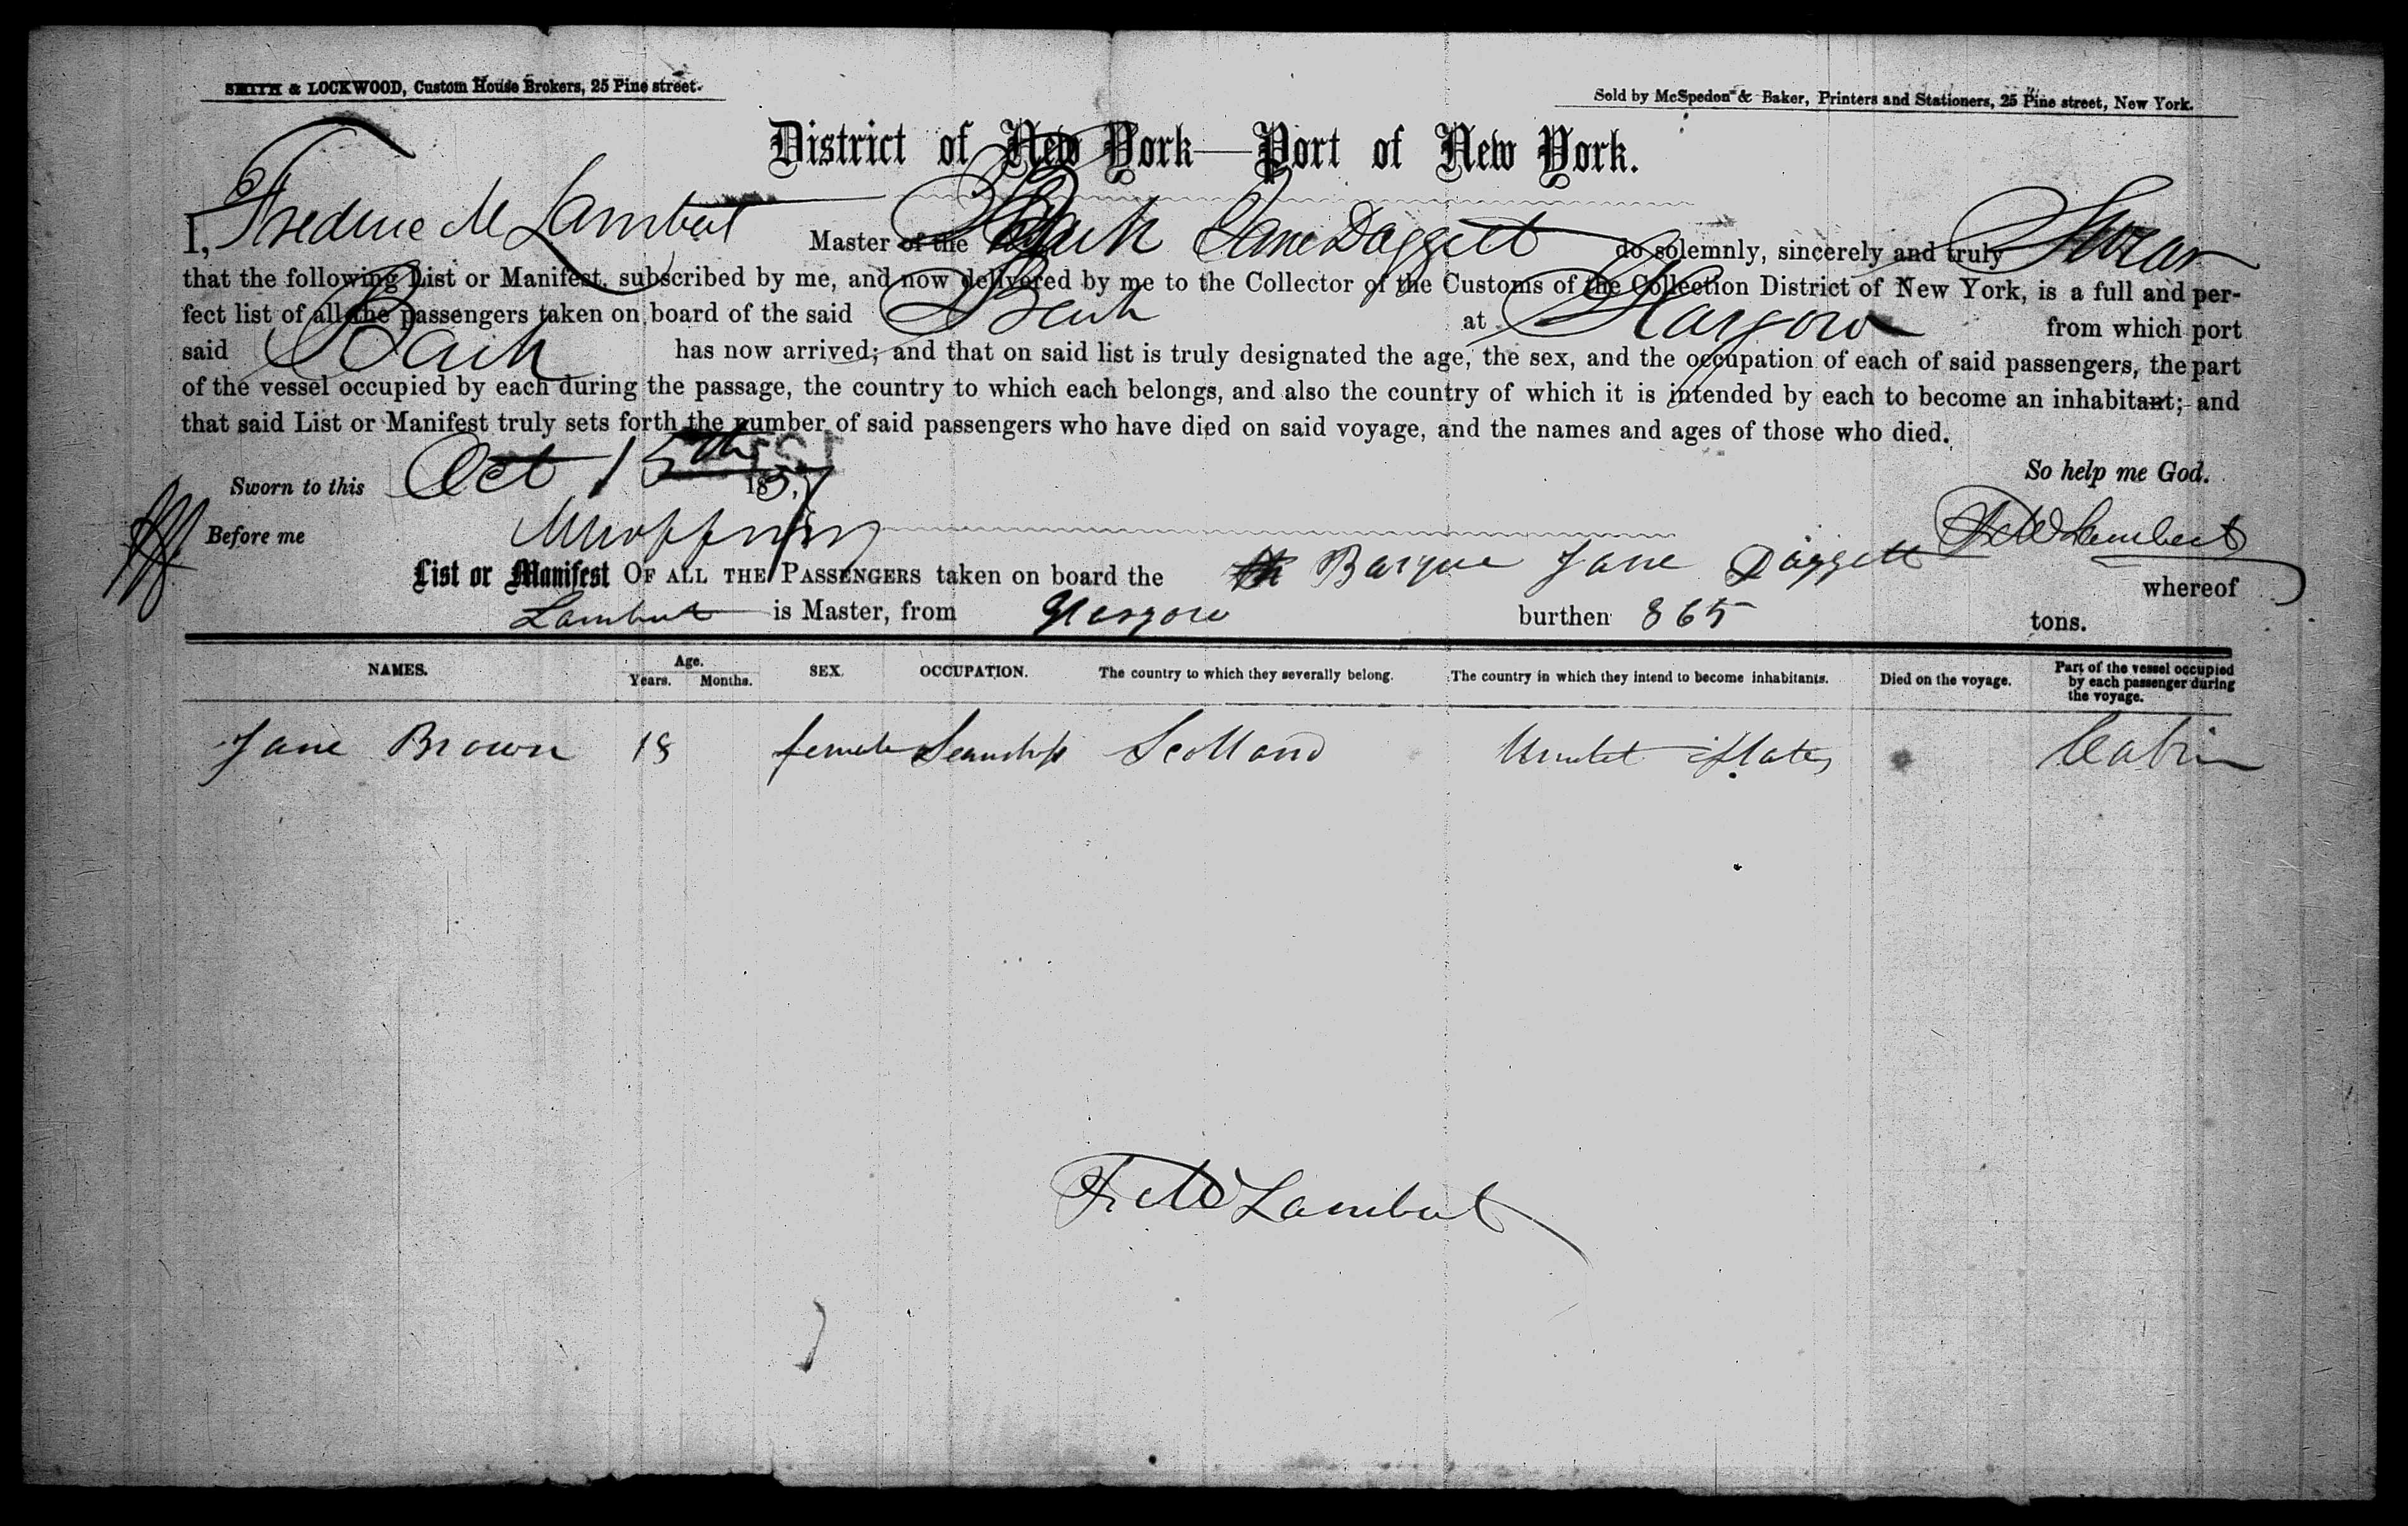 SMITH & LOCKWOOD, Custom House Brokers, 25 Pine street.
Sold by McSpedon & Baker, Printers and Stationers, 25 Pine street, New York.
District of New York—Port of New York.
I, Frederic M Lambert Master of the Bark Jane Daggett do solemnly, sincerely and truly Swear
that the following List or Manifest, subscribed by me, and now delivered by me to the Collector of the Customs of the Collection District of New York, is a full and per-
fect list of all the passengers taken on board of the said Bark at Glasgow from which port
said Bark has now arrived; and that on said list is truly designated the age, the sex, and the occupation of each of said passengers, the part
of the vessel occupied by each during the passage, the country to which each belongs, and also the country of which it is intended by each to become an inhabitant; and
that said List or Manifest truly sets forth the number of said passengers who have died on said voyage, and the names and ages of those who died.
So help me God.
Sworn to this Oct 15th 1857
Before me
Fr M Lambert
List or Manifest OF ALL THE PASSENGERS taken on board the Barque Jane Daggett whereof
Lambert is Master, from Glasgow burthen 865 tons.
NAMES. Age. Years. Months. SEX. OCCUPATION. The country to which they severally belong. The country in which they intend to become inhabitants. Died on the voyage. Part of the vessel occupied by each passenger during the voyage.
Jane Brown 18 female Scotland United States Cabin
Fr M Lambert